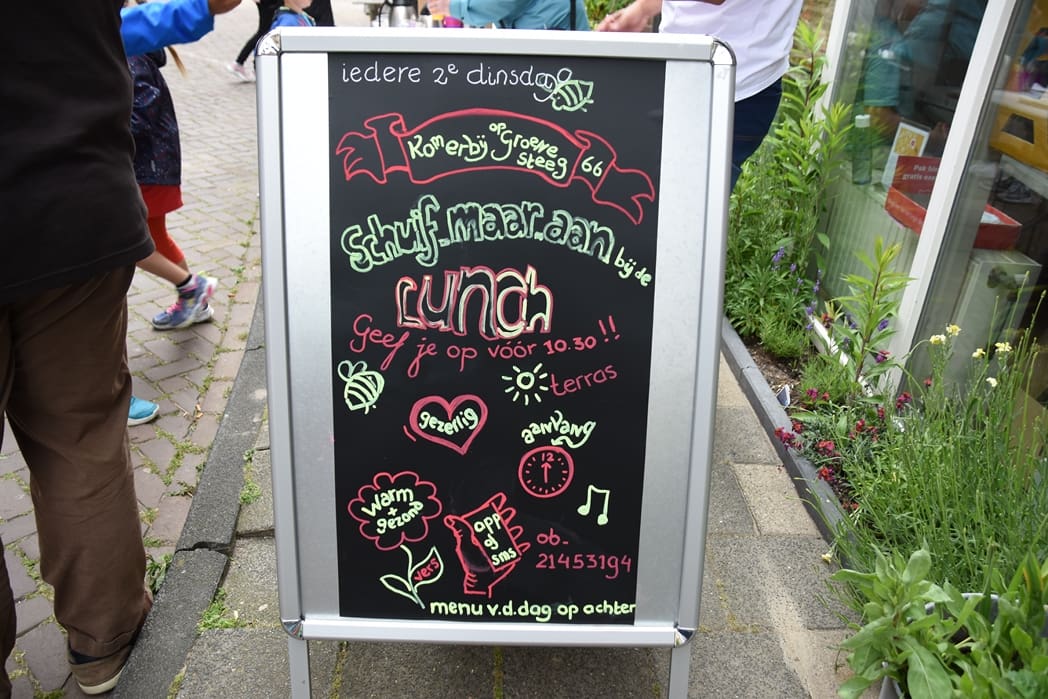 iedere 2e dinsdag
Kom erbij op Groene steeg 66
schuif maar aan bij de
Lunch
Geef je op vóór 10.30!!
terras
gezellig
aanvang
12
warm
+
gezond
app
of
sms
06-
21453194
vers
menu v.d. dag op achter
Pak hier
gratis een